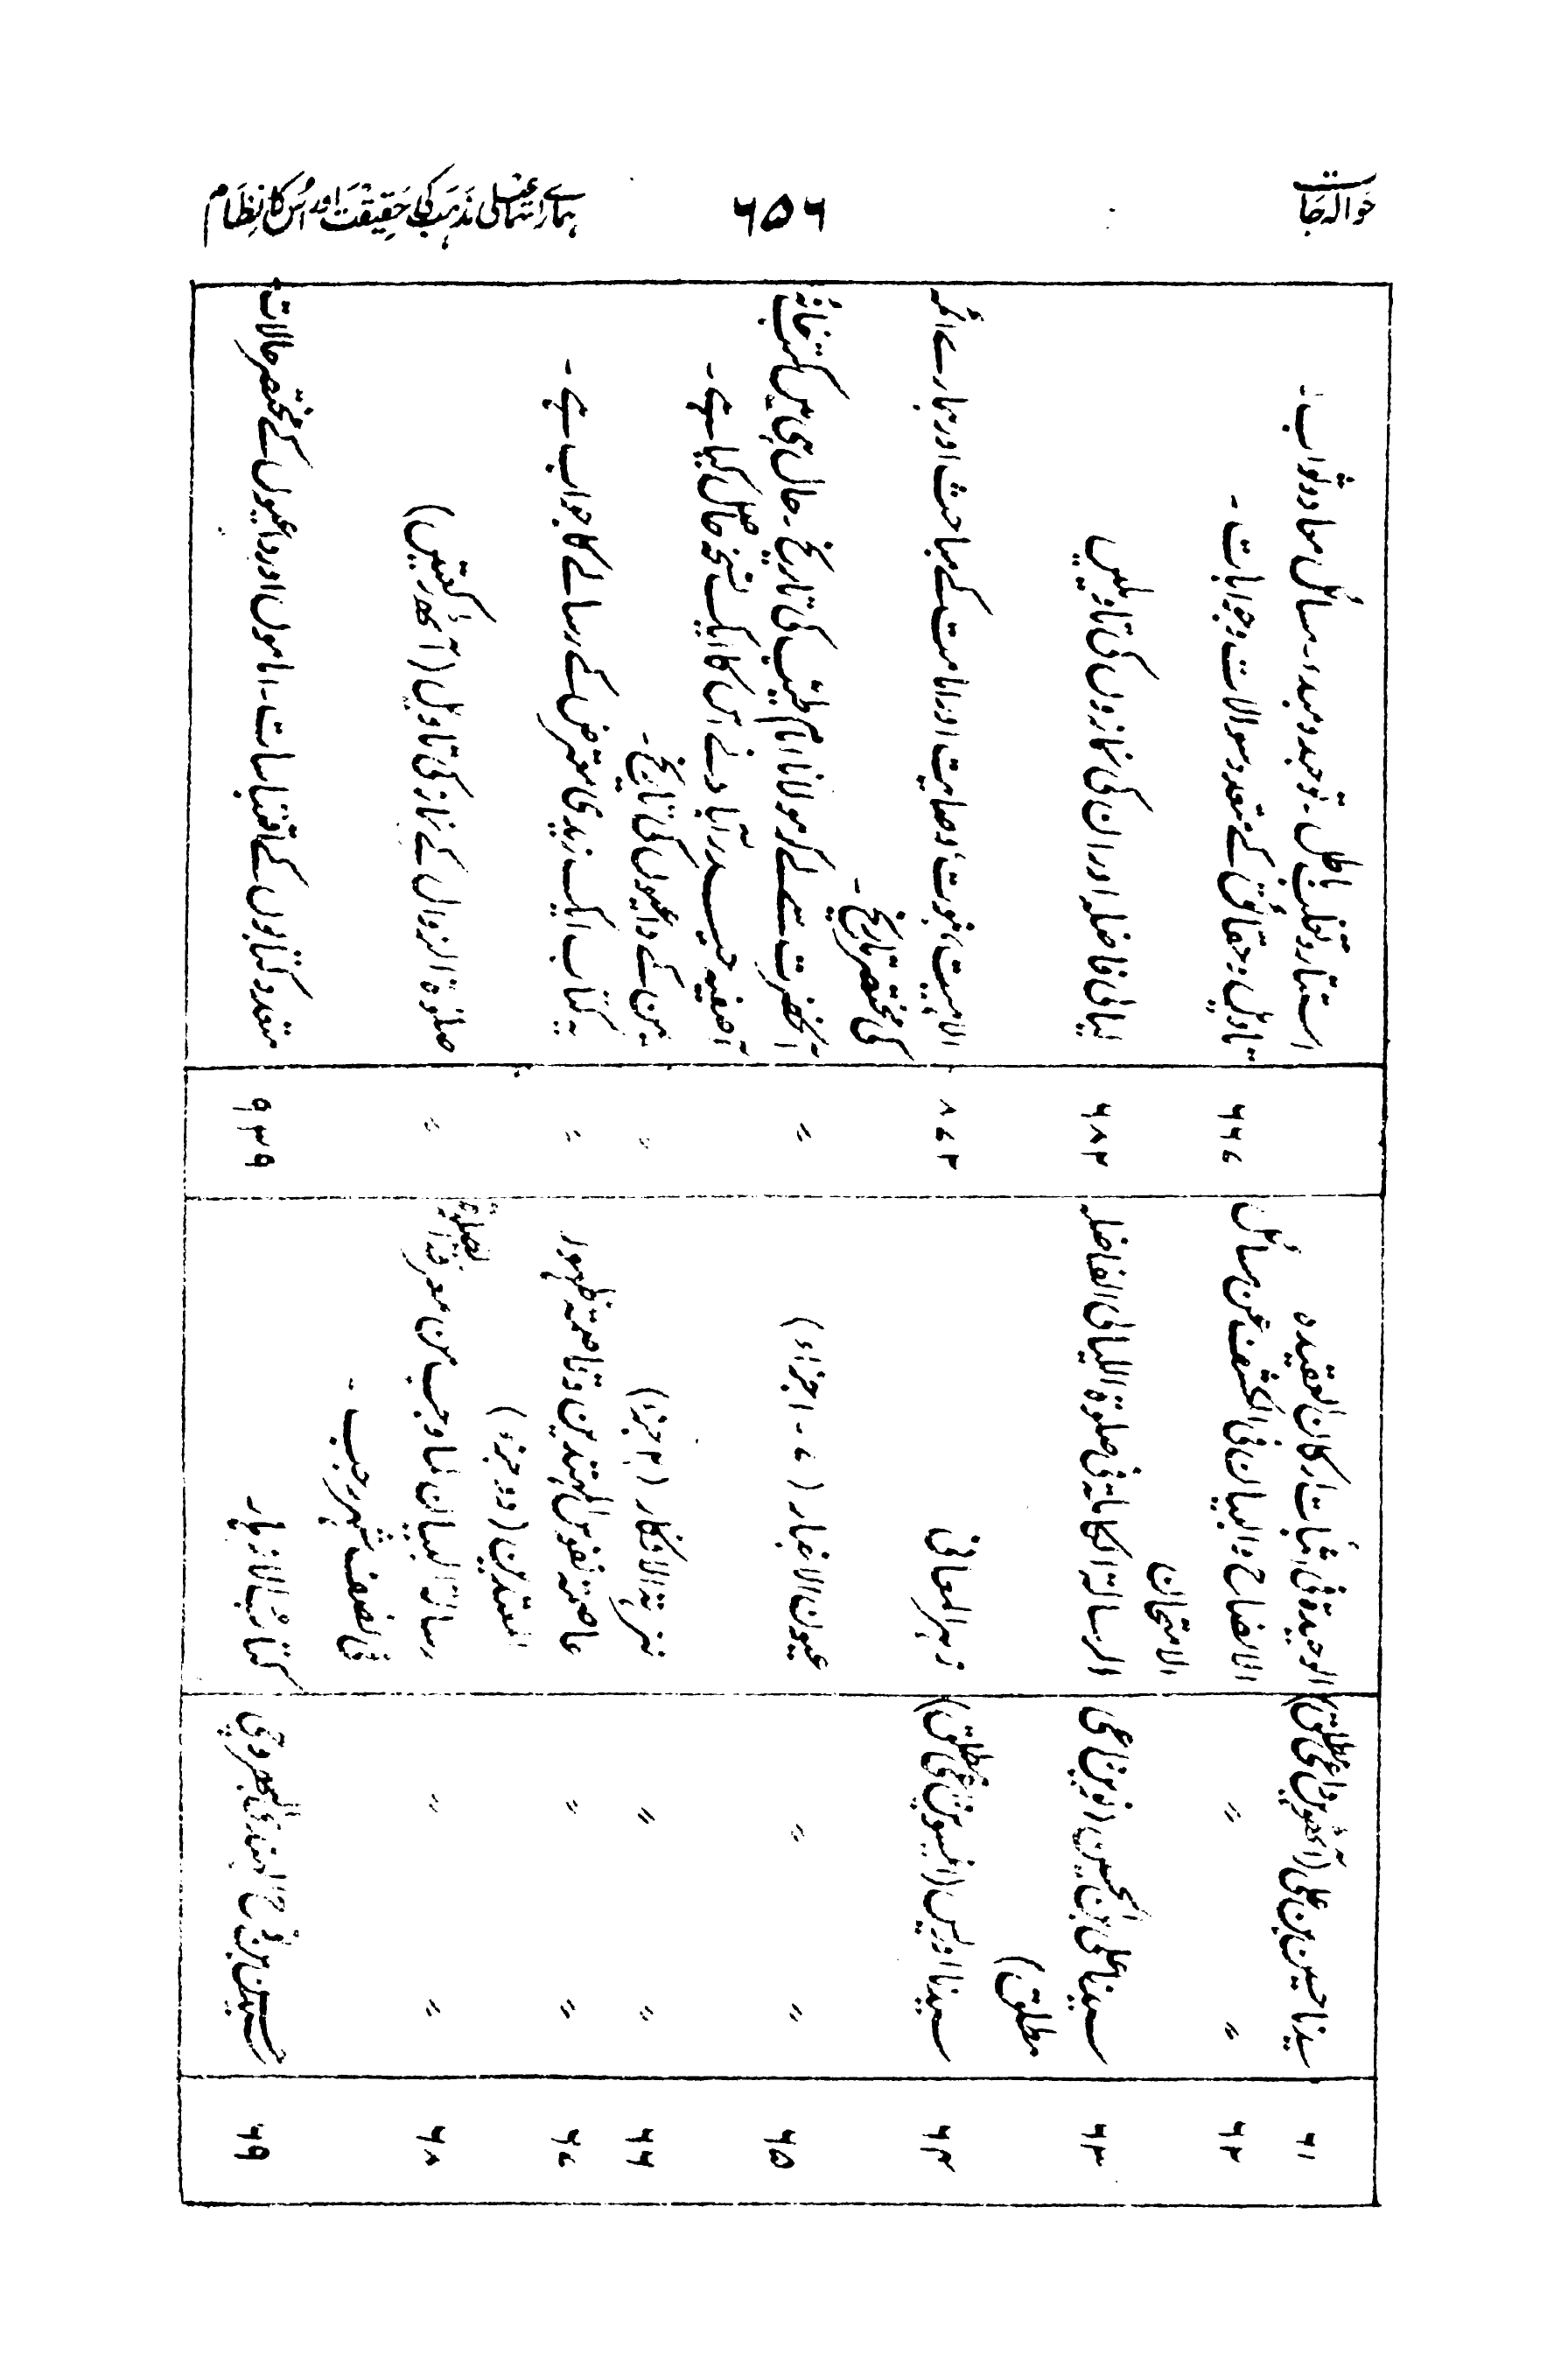 حوالہ جات
۶۵۶
ہمارے اسماعیلی مذہب کی حقیقت اور اس کا نظام
۶۱
سیدنا حسین بن علی (آٹھویں داعی مطلق)
الوحیدة فی اثبات ارکان العقیدہ
استتار و تغلب باطل ـ توحید و مبدء ـ مسائل معاد و ثواب ـ
۶۲
〃 〃
الایضاح و البیان فی الکشف عن مسائل
الامتحان
۶۶۷
تاویل و حقائق کے متعدد سوالات و جوابات ـ
۶۳
سیدنا علی بن الحسین (نویں داعی
مطلق)
الرسالة الکاملة فی صلوة اللیالی الفاضلہ
۶۸۲
لیالی فاضلہ اور ان کی نمازوں کی تاویلیں
۶۴
سیدنا ادریس (انیسویں داعی مطلق)
زہر المعانی
۸۷۲
الاہیت، نبوت، وصایت اور امامت کے مباحث اور ہمارے ائمہ
کی مختصر تاریخ ـ
۶۵
〃 〃
عیون الاخبار (۷ ـ اجزاء)
〃
آنحضرت سے لے کر مولانا امام طیب کی تاریخ ـ حال ہی میں کتب خانۂ
آصفیہ حیدرآباد نے اس کا ایک نسخہ حاصل کیا ہے ـ
۶۶
〃 〃
نزہة الافکار (۲ جزء)
〃
یمن کے داعیوں کی تاریخ ـ
۶۷
〃 〃
عاصمة نفوس المہتدین و قاصمة ظہور
المعتدین (دو جزء)
〃
یہ کتاب ایک زیدی معترض کے رسالے کا جواب ہے ـ
۶۸
〃 〃
رسالة البیان لما وجب من معرفة الصلوة
فی نصف شہر رجب ـ
〃
صلوة الزوال کے نماز کی تاویل (آٹھ رکعتیں)
۶۹
حسین بن نوح الہندی البھروچی
کتاب الازہار
۹۳۹
متعدد کتابوں کے اقتباسات ـ اماموں اور داعیوں کے مختصر حالات